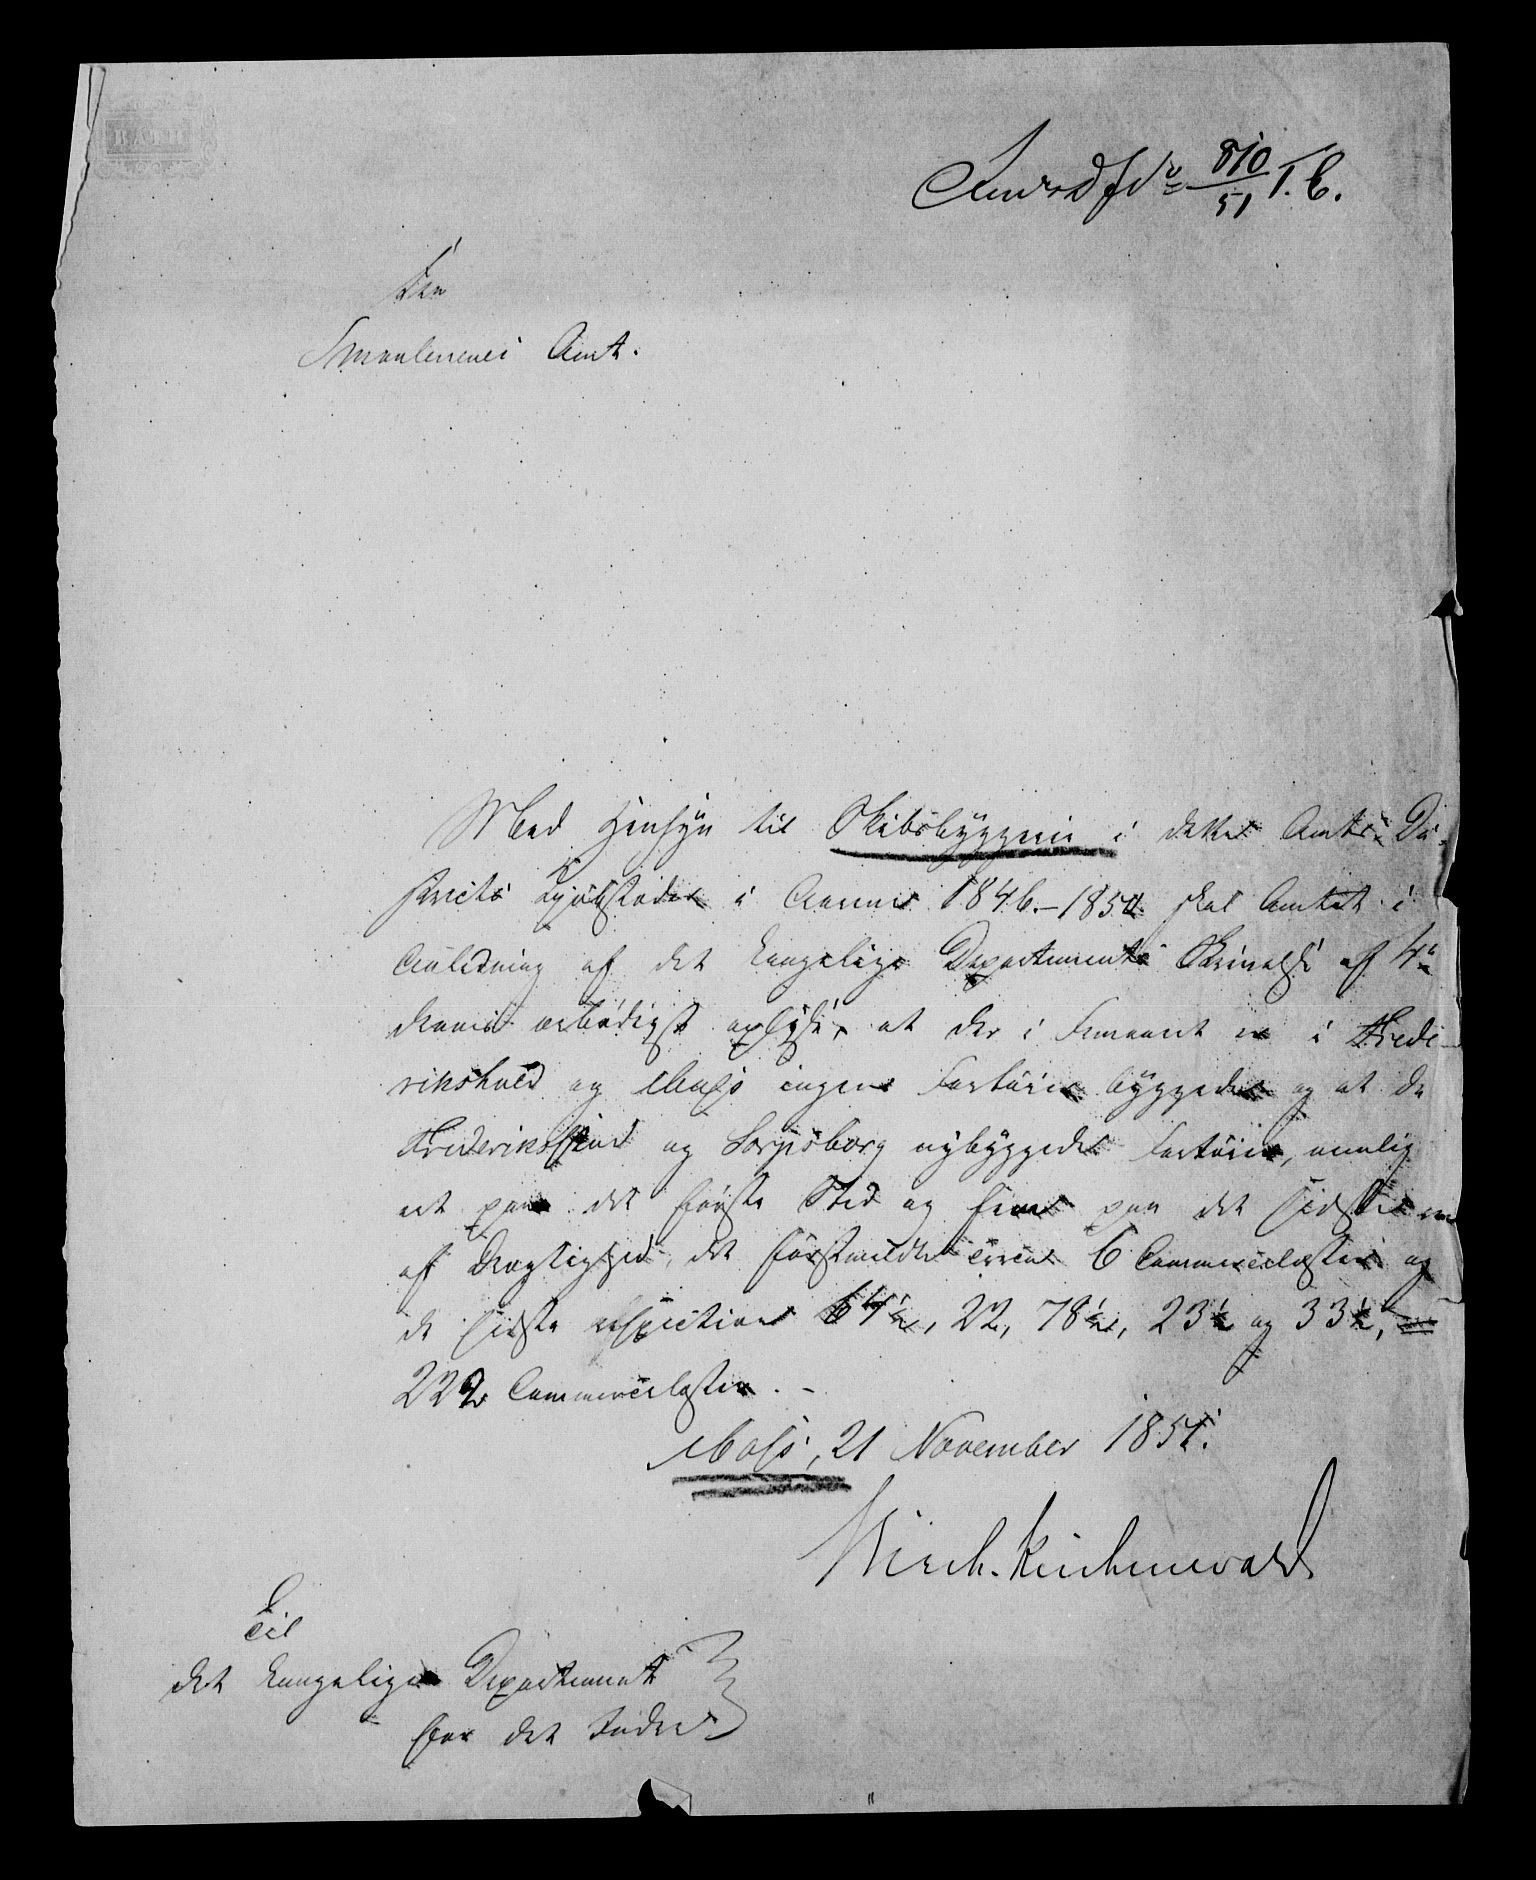 No 810/51 I. C.
Fra
Smaalenenes Amt.
Med Hensyn til Skibsbyggerie i dette Amts Di-
stricts Kjøbstæder i Aarene 1846-1850 skal Amtet i
Anledning af det kongelige Departements Skrivelse af 4de
dennes ærbødigst oplyse, at der i Femaaret er i Frede-
rikshald og Moss ingen Fartøier byggede og at de
Frederiksstad og Sarpsborg nybyggede Fartøier, nemlig
eet paa det første Sted og fem paa det sidste er
af Drægtighed, det førstmeldte circa 6 Commercelæster og
de sidste respective 64½, 22, 78½, 23½ og 33½,
222 Commercelæster. -
Moss, 21 November 1851.
Birch-Reichenwald
Til
det kongelige Departement
for det Indre